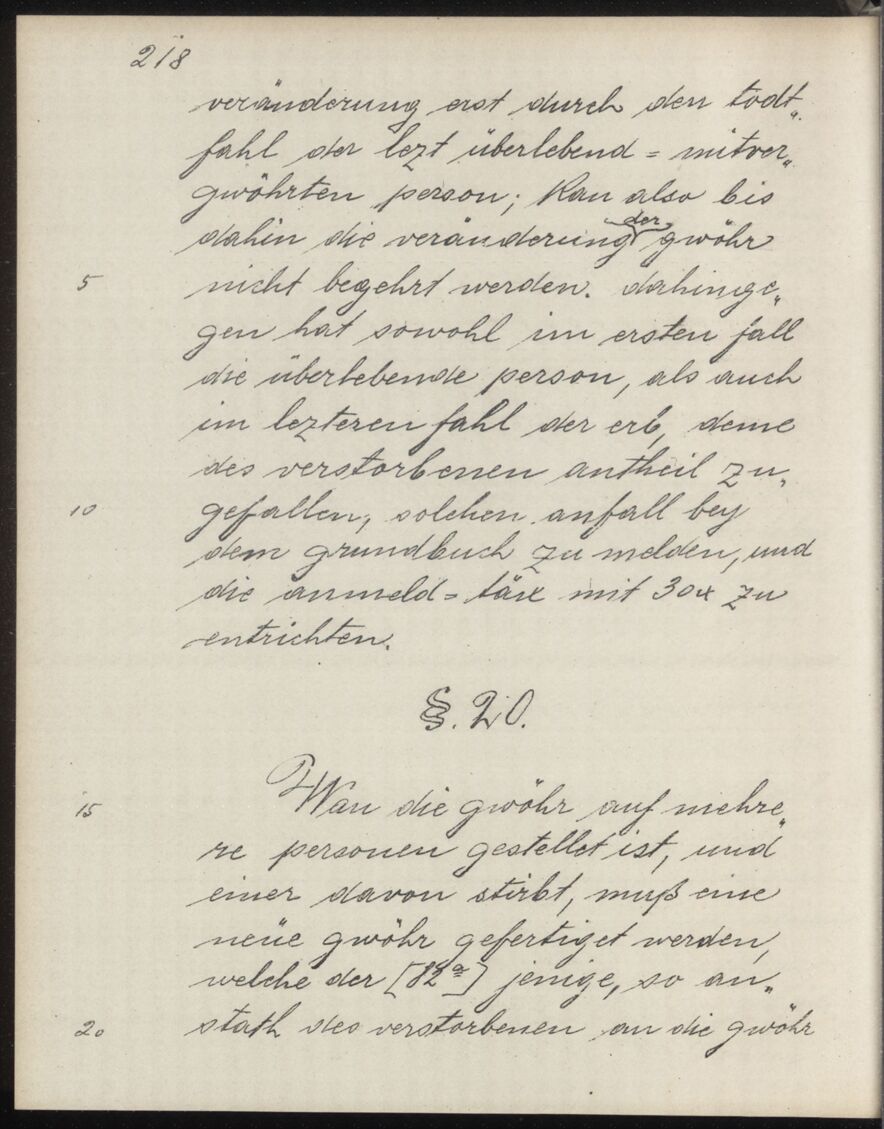 218
veränderung erst durch den todt„
fahl der lezt überlebend = mitver„
gwöhrten person; Kan also bis
dahin die veränderung der gwöhr
5 nicht begehrt werden. dahinge„
gen hat sowohl im ersten fall
die überlebende person, als auch
im lezteren fahl der erb, deme
des verstorbenen antheil zu„
10 gefallen, solchen anfall bey
dem grundbuch zu melden, und
die anmeld = täx mit 30x zu
entrichten.
§. 20.
15 Wan die gwöhr auf mehre„
re personen gestellet ist, und
einer davon stirbt, muß eine
neüe gwöhr gefertiget werden,
welche der [82ª] jenige, so an„
20 stath des verstorbenen an die gwöhr